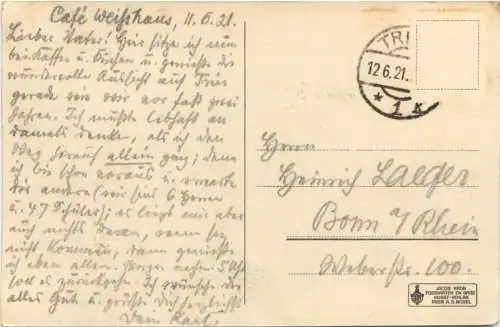 Café Weißhaus, 11.6.21.
Lieber Vater! Hier sitze ich nun
bei Kaffee u. Kuchen u. genieße die
wundervolle Aussicht auf Trier
gerade wie wir vor fast zwei
Jahren. Ich mußte lebhaft an
damals denken, als ich den
Weg herauf allein ging; denn
ich bin schon voraus u. erwarte
die andern (wir sind 6 Herren
u. 47 Schüler); es liegt mir aber
auch nichts daran, wenn sie
nicht kommen, dann genieße
ich eben allein. Morgen 5 Uhr
soll es zurückgehn. Ich wünsche dir
alles Gute u. grüße Dich herzlichst
Dein Karl.
TRI
12.6.21.
* 1 K
Herrn
Heinrich Laeger
Bonn a/Rhein
Weberstr. 100.
JACOB KRON
KUNST-VERLAG
TRIER A.D. MOSEL